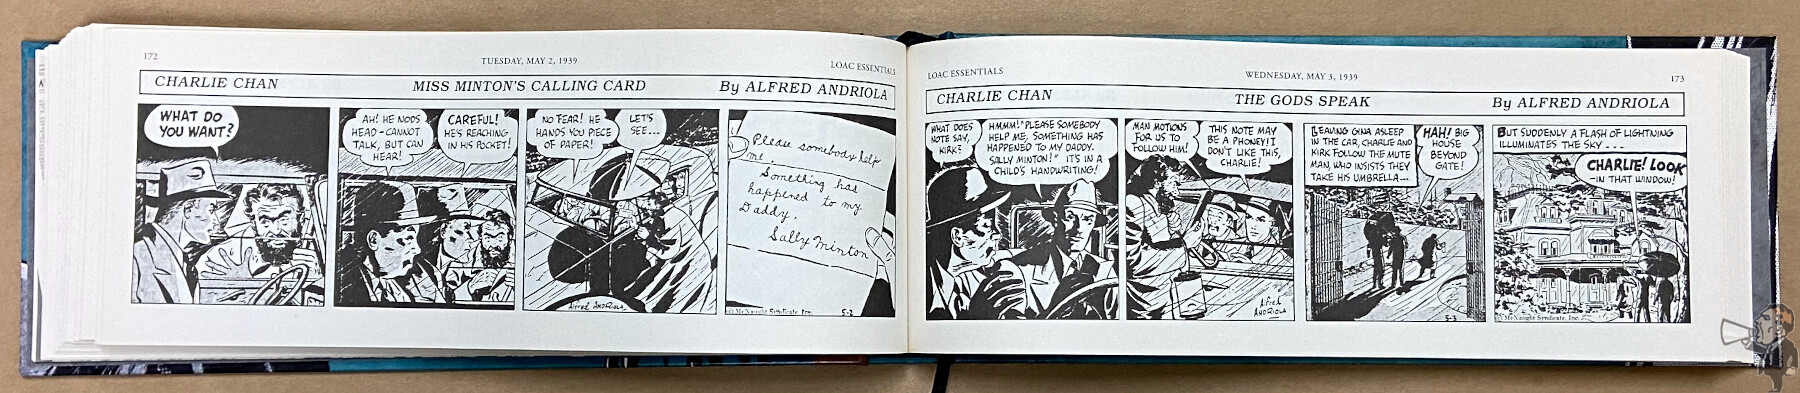 172
TUESDAY, MAY 2, 1939
LOAC ESSENTIALS
CHARLIE CHAN
MISS MINTON'S CALLING CARD
By ALFRED ANDRIOLA
WHAT DO
YOU WANT?
AH! HE NODS
HEAD - CANNOT
TALK, BUT CAN
HEAR!
CAREFUL!
HE'S REACHING
IN HIS POCKET!
NO FEAR! HE
HANDS YOU PIECE
OF PAPER!
LET'S
SEE...
Alfred ANDRIOLA
Please somebody help
me.
Something has
happened to my
Daddy.
Sally Minton
5-2
(c) McNaught Syndicate, Inc.
LOAC ESSENTIALS
WEDNESDAY, MAY 3, 1939
173
CHARLIE CHAN
THE GODS SPEAK
By ALFRED ANDRIOLA
WHAT DOES
NOTE SAY,
KIRK?
HMMM! "PLEASE SOMEBODY
HELP ME, SOMETHING HAS
HAPPENED TO MY DADDY.
SALLY MINTON!" IT'S IN A
CHILD'S HANDWRITING!
MAN MOTIONS
FOR US TO
FOLLOW HIM!
THIS NOTE MAY
BE A PHONEY! I
DON'T LIKE THIS,
CHARLIE!
Alfred
ANDRIOLA
LEAVING GINA ASLEEP
IN THE CAR, CHARLIE AND
KIRK FOLLOW THE MUTE
MAN, WHO INSISTS THEY
TAKE HIS UMBRELLA...
HAH! BIG
HOUSE
BEYOND
GATE!
5-3
BUT SUDDENLY A FLASH OF LIGHTNING
ILLUMINATES THE SKY...
CHARLIE! LOOK
-IN THAT WINDOW!
(c) McNaught Syndicate, Inc.